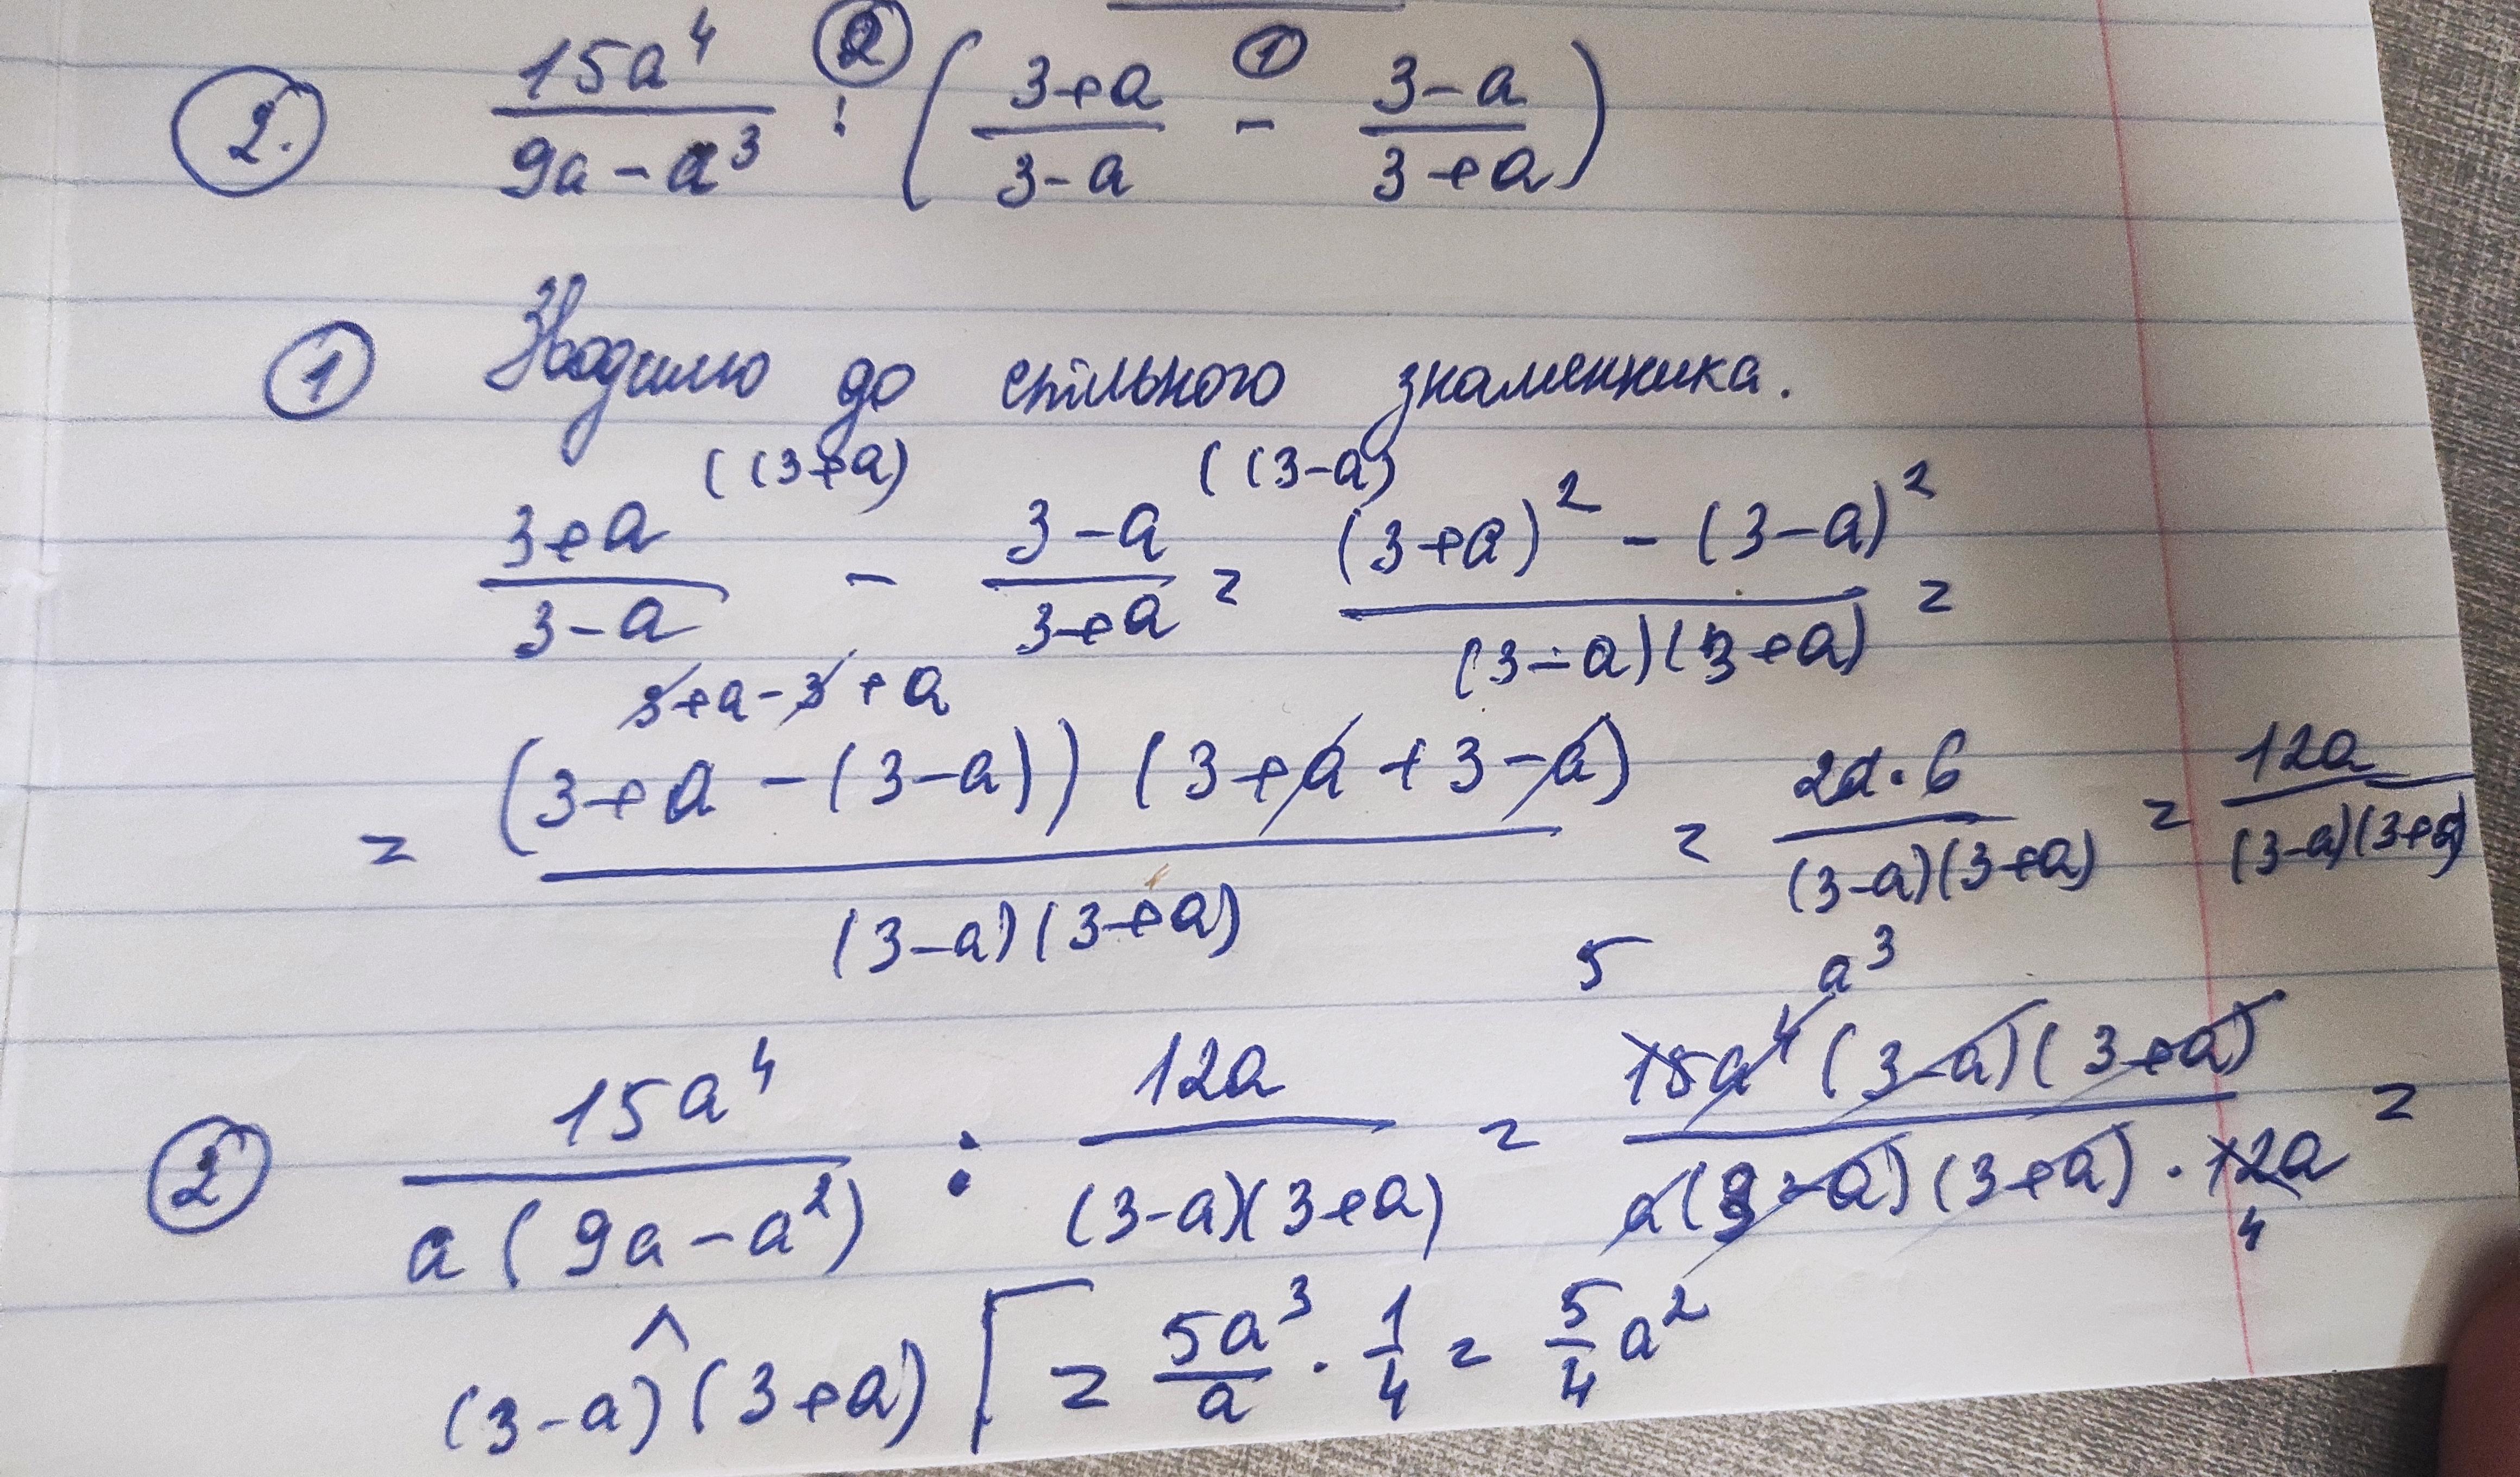 2. 15a⁴ / (9a - a³) : ② ( (3+a) / (3-a) - ① (3-a) / (3+a) )
① Зводимо до спільного знаменника.
(3+a) / (3-a) ((3+a) - (3-a) / (3+a) ((3-a) = ((3+a)² - (3-a)²) / ((3-a)(3+a)) =
3+a-3+a
= (3+a-(3-a))(3+a+3-a) / ((3-a)(3+a)) = 2a·6 / ((3-a)(3+a)) = 12a / ((3-a)(3+a))
5 a³
② 15a⁴ / (a(9a-a²)) : 12a / ((3-a)(3+a)) = 15a⁴(3-a)(3+a) / (a(3-a)(3+a)·12a) =
4
(3-a)(3+a) = 5a³/a · 1/4 = 5/4 a²